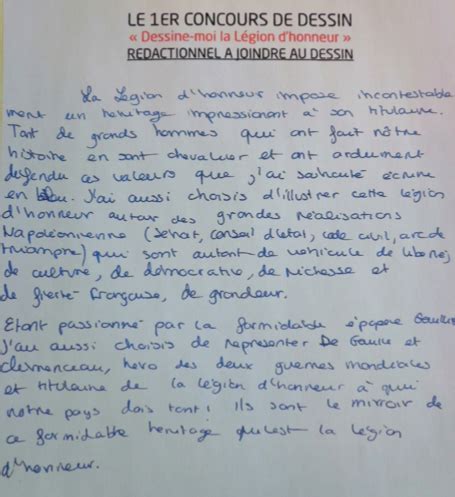 LE 1ER CONCOURS DE DESSIN
« Dessine-moi la Légion d'honneur »
REDACTIONNEL A JOINDRE AU DESSIN
La Légion d'honneur impose incontestable
ment un heritage impressionant à son titulaire.
Tant de grands hommes qui ont fait nôtre
histoire en sont chevalier et ont ardument
defendu ces valeurs que j'ai écrune
en bleu. J'ai aussi choisis d'illustrer cette légion
d'honneur autour des grandes réalisations
Napoléonienne (Sénat, conseil d'état, code civil, arc de
triomphe) qui sont autant de vehicule de
de culture, de démocratie, de richesse et
de fierté Française, de grandeur.
Etant passionné par la formidable épopee Gaullie
J'au aussi choisis de representer De Gaulle et
Clemenceau, hero des deux guerres mondiales
et titulaire de la légion d'honneur à qui
notre pays dois tant! Ils sont le mirroir de
ce formidable heritage qu'est la légion
d'honneur.